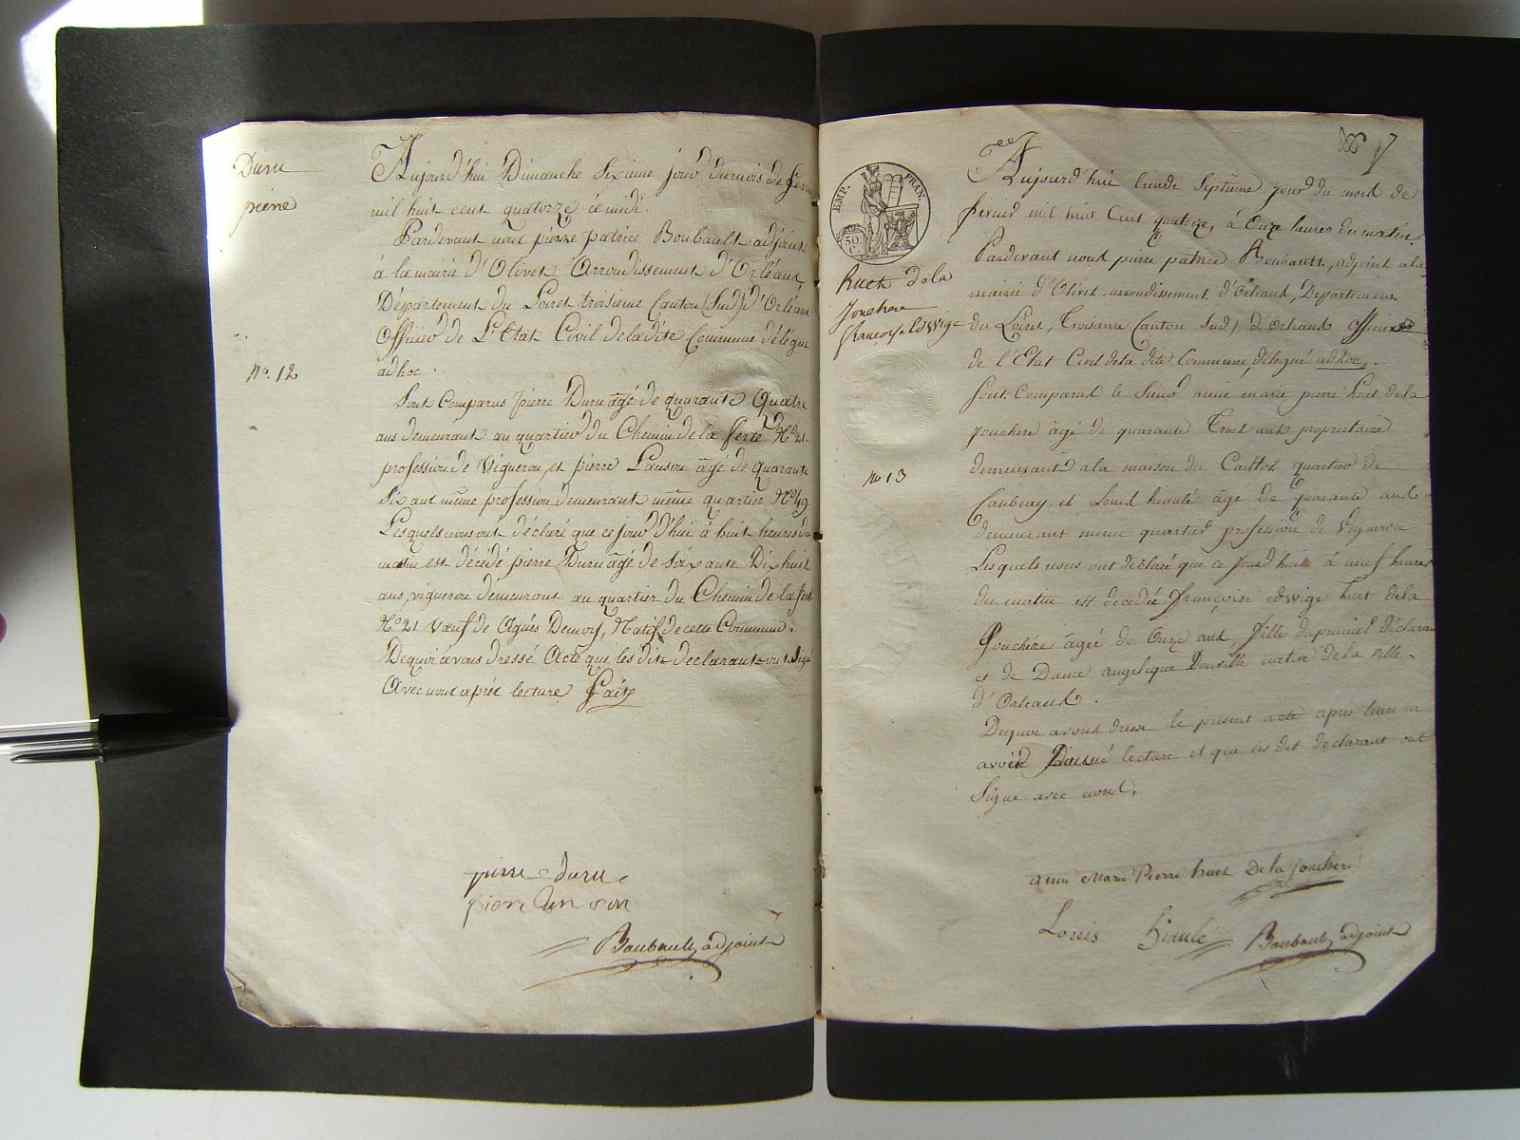 Duru
pierre
N.o 12
Aujourd'hui Dimanche Sixieme jour du mois de fev
mil huit cent quatorze à midi.
Pardevant nous pierre patrice Boubault adjoint
à la mairie d'Olivet Arrondissement d'Orléans,
Département du Loiret troisieme Canton (Sud) d'Orléans
Officier de L'Etat Civil de la dite Commune délégué
adhoc.
Sont Comparus pierre Duru âgé de quarante Quatre
ans demeurant au quartier du Chemin de la ferté N.o 21.
profession de Vigneron, et pierre âgé de quarante
Six ans même profession demeurant même quartier N.o 49
Lesquels nous ont déclaré que ce jour d'hui à huit heures du
matin est décédé pierre Duru âgé de Soixante Dix huit
ans, vigneron demeurant au quartier du Chemin de la fert
N.o 21 Vœuf de Agnés Natif de cette Commune.
Dequoi avons dressé Acte que les dits declarants ont Signé
Avec nous après lecture faite
pierre duru
pierre
Boubault adjoint
7
EMP. FRAN.
50 C.
Huet de la
Jouchere
françoise Edwige
N.o 13
Aujourd'hui lundi Septieme jour du mois de
fevrier mil huit Cent quatorze, à Onze heures du matin.
Pardevant nous pierre patrice Boubault, adjoint a la
mairie d'Olivet arrondissement d'Orleans, Departement
du Loiret, Troisieme Canton (Sud) d'orleans officier
de l'Etat Civil de la dite Commune, délégué adhoc.
Sont Comparus le Sieur aimé marie pierre huet de la
Jouchere âgé de quarante Trois ans proprietaire
demeurant a la maison du quartier de
Caubray et Louis hiaulé âgé de quarante ans
demeurant meme quartier profession de Vigneron
Lesquels nous ont déclaré que ce jourd'huila à neuf heures
du matin est decedée françoise edwige huet dela
Jouchère âgée de Onze ans, fille du premier Déclarant
et de Dame angelique native de la ville
d'Orleans.
Dequoi avons dressé le present acte après leur en
avoir Donné lecture et que les dits declarants ont
Signé avec nous.
aimé Marie Pierre huet De la Jouchere
Louis hiaulé
Boubault adjoint